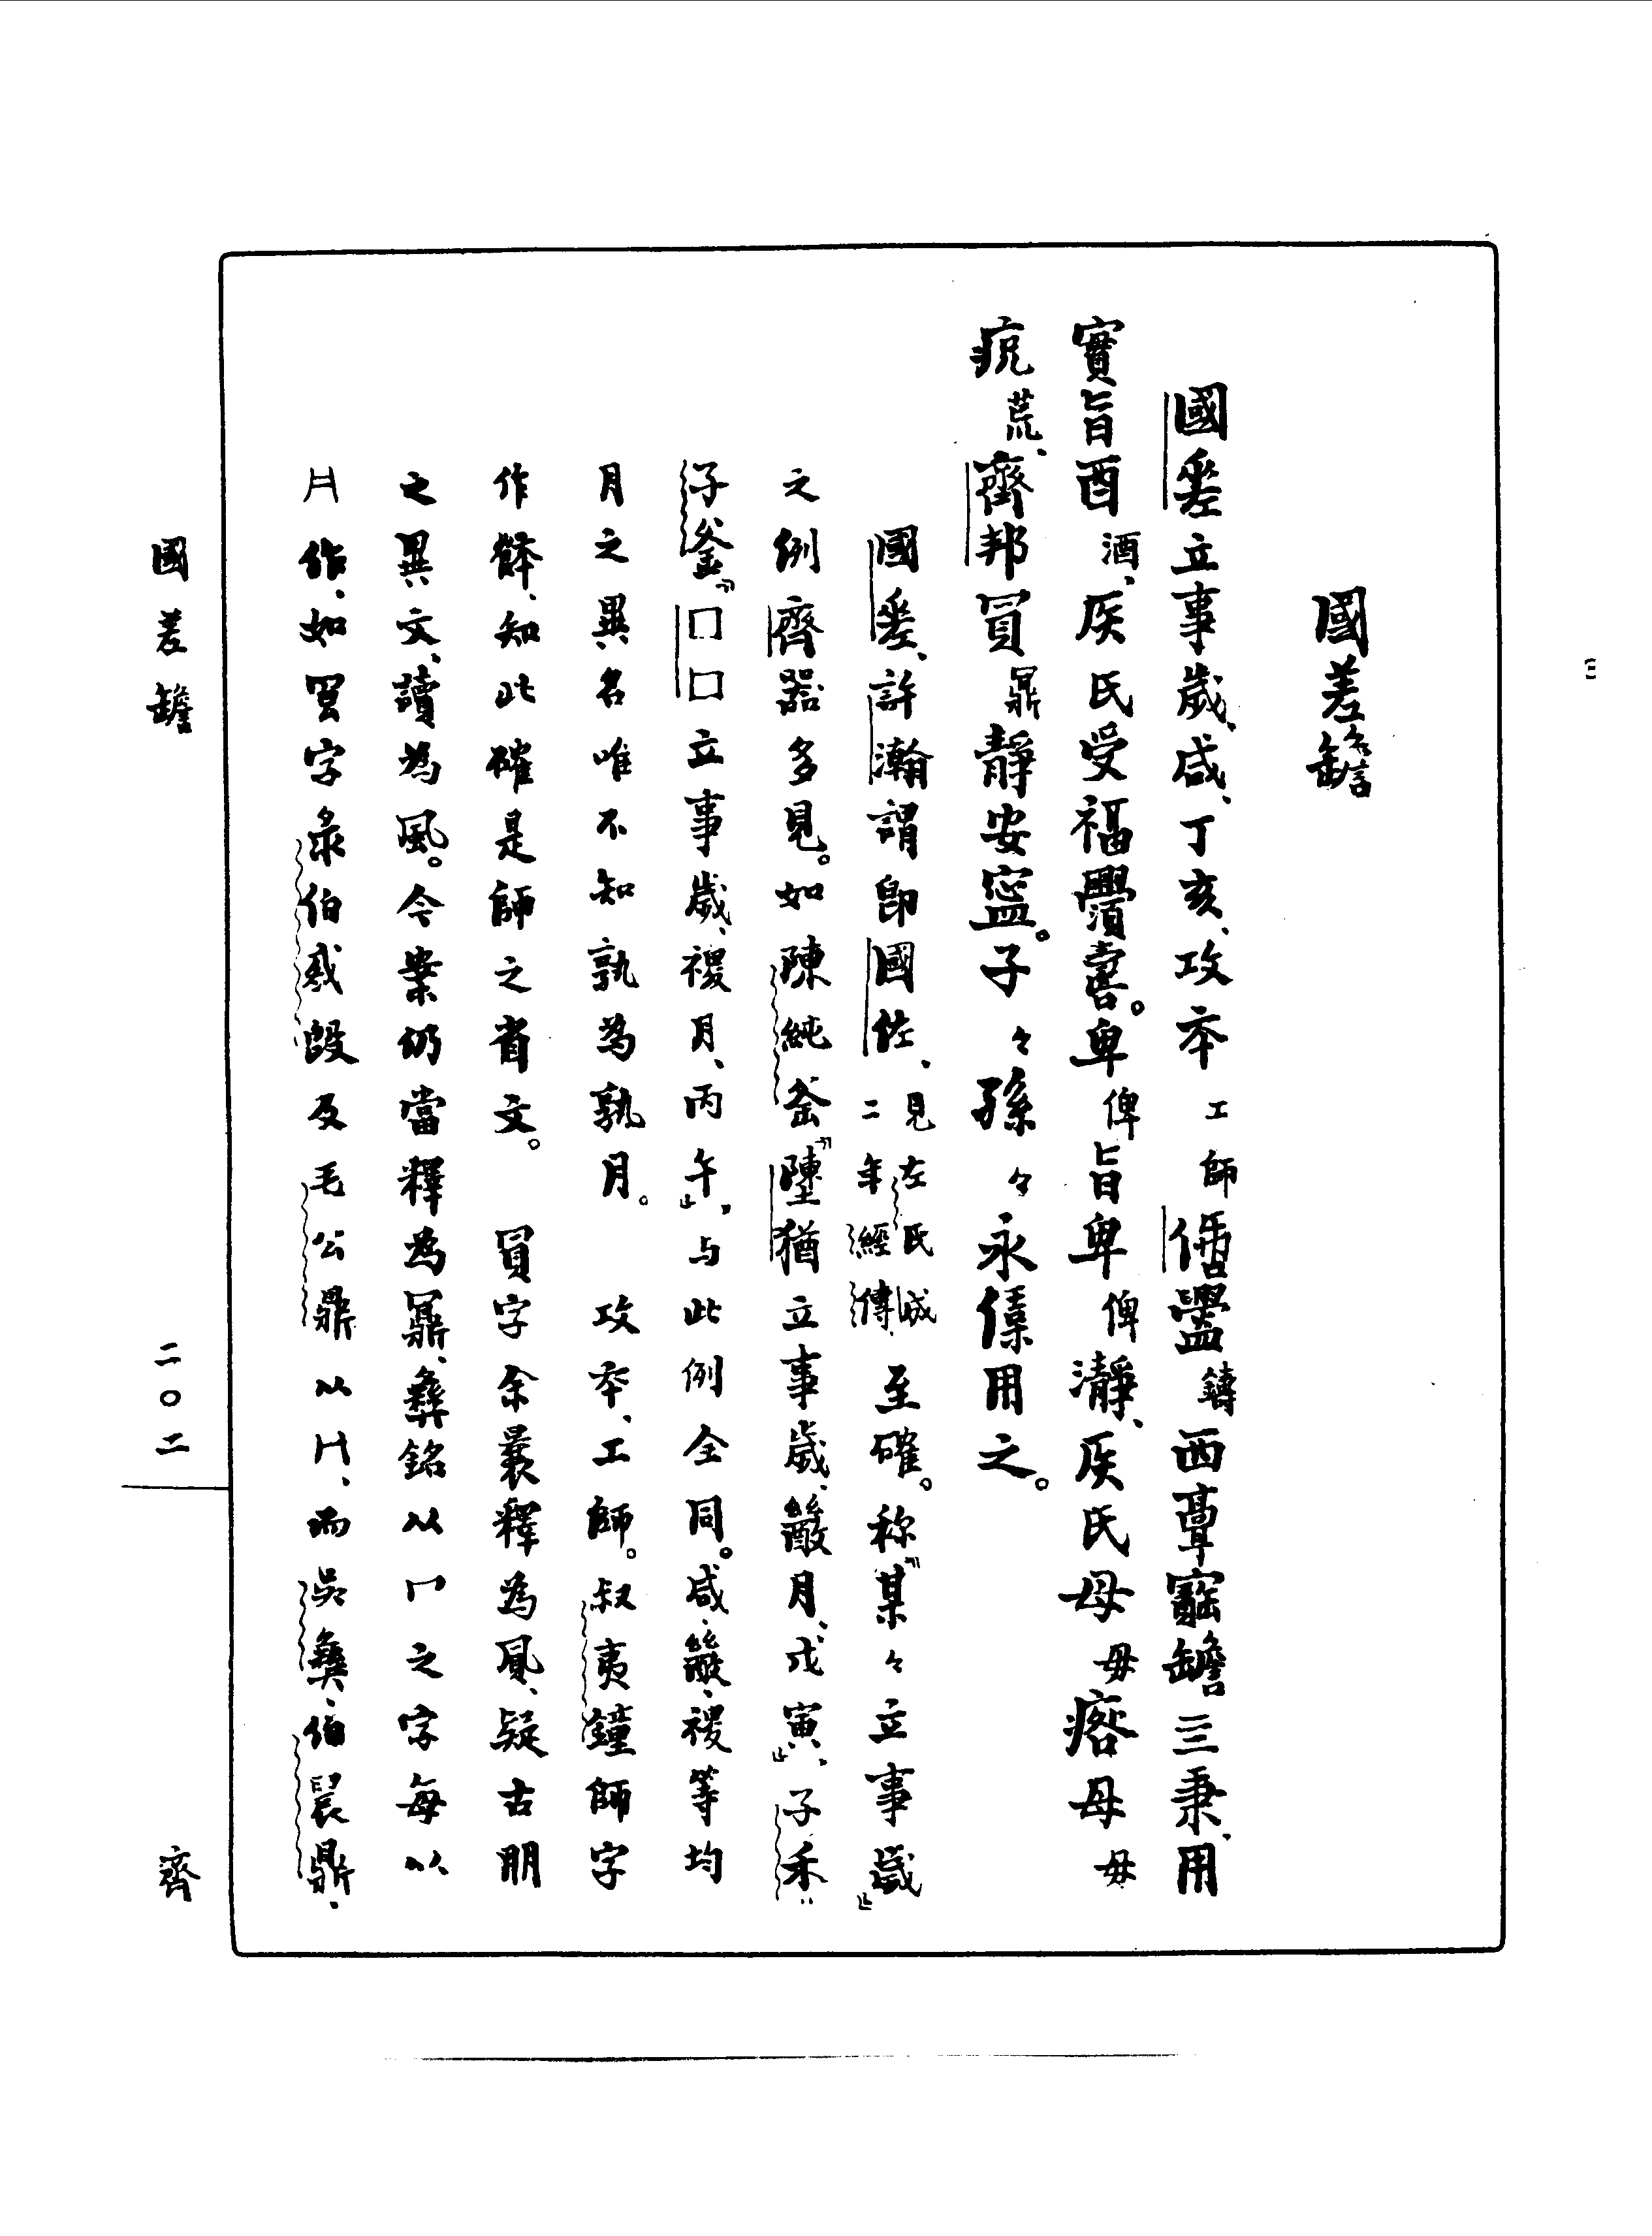 國差𦉜
國差立事歲、咸、丁亥、攻帀工師𠈇鑄西𩫖寶𦉜三秉、用
實旨酉酒、厌氏受福眉壽。卑俾旨卑俾瀞、厌氏母毋瘩母毋
㽼荒、齊邦鼏靜安寍。子々孫々永保用之。
國差、許瀚謂即國佐、見左氏成二年經傳、至確。称『某々立事歲』
之例齊器多見。如陳純釜『𨻰猶立事歲、月、戊寅』、子禾
子釜『□□立事歲、禝月、丙午』、与此例全同。咸、禝等均
月之異名唯不知孰為孰月。 攻帀、工師。叔夷鐘師字
作、知此確是師之省文。 字余曩釋為鳳、疑古朋
之異文、讀為風。今案仍當釋為鼏、彝銘从冖之字每以
作、如字彔伯㦰𣪘及毛公鼎以、而吳彝、伯晨鼎、
國差𦉜
二〇二
齊